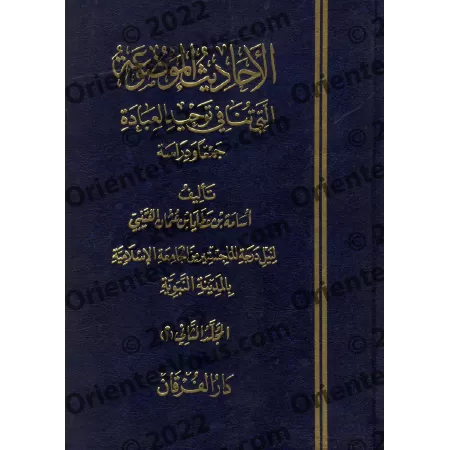 الأحاديث الموضوعة
التي تنافي توحيد العبادة
جمعا ودراسة
تأليف
أسامة بن عطايا بن عثمان العتيبي
لنيل درجة الماجستير من الجامعة الإسلامية
بالمدينة النبوية
المجلد الثاني (٢)
دار الفرقان
© 2022
OrientezVous.com